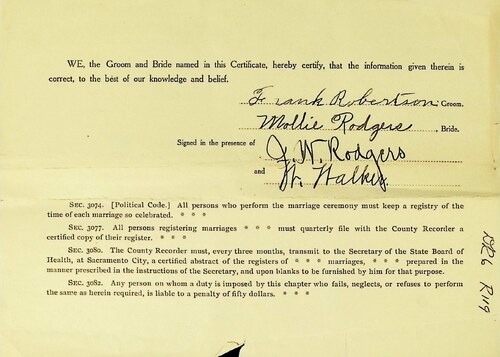 WE, the Groom and Bride named in this Certificate, hereby certify, that the information given therein is
correct, to the best of our knowledge and belief.
Frank Robertson Groom.
Mollie Rodgers, Bride.
Signed in the presence of J. W. Rodgers
and W. Walker.
SEC. 3074. [Political Code.] All persons who perform the marriage ceremony must keep a registry of the
time of each marriage so celebrated. * * *
SEC. 3077. All persons registering marriages * * * must quarterly file with the County Recorder a
certified copy of their register. * * *
SEC. 3080. The County Recorder must, every three months, transmit to the Secretary of the State Board of
Health, at Sacramento City, a certified abstract of the registers of * * * marriages, * * * prepared in the
manner prescribed in the instructions of the Secretary, and upon blanks to be furnished by him for that purpose.
SEC. 3082. Any person on whom a duty is imposed by this chapter who fails, neglects, or refuses to perform
the same as herein required, is liable to a penalty of fifty dollars. * * *